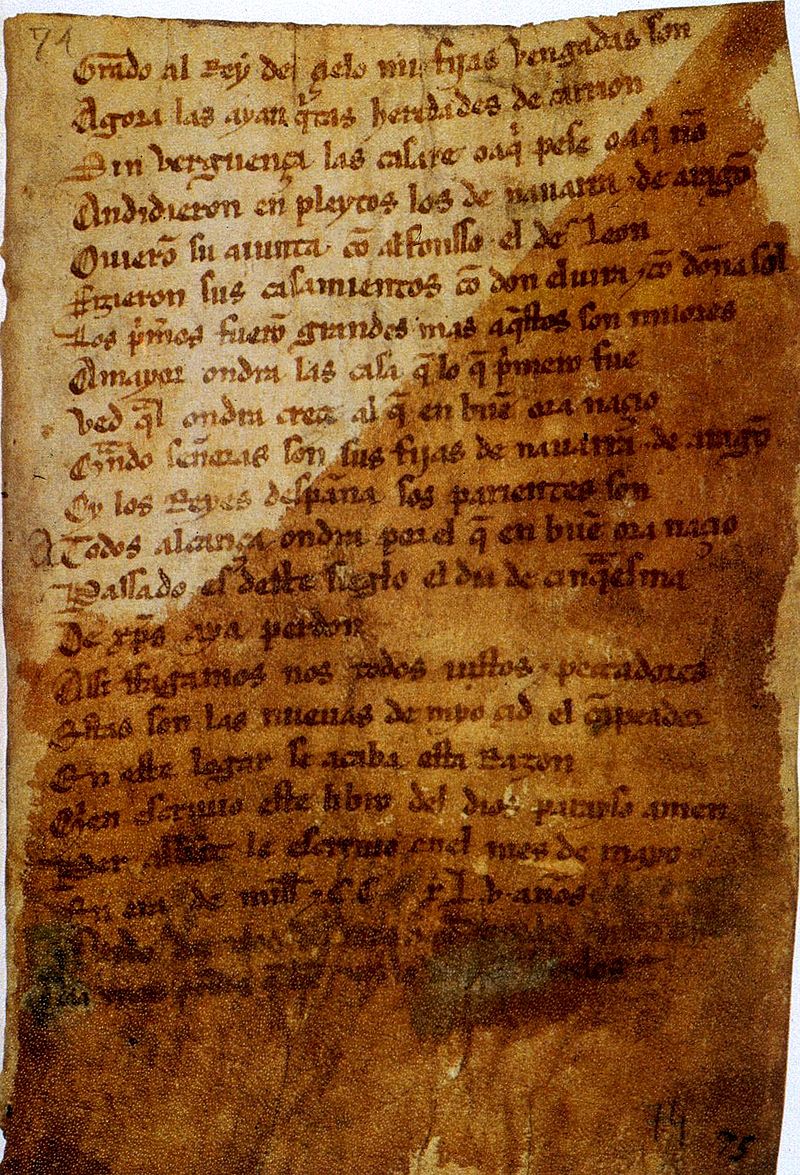 74
Grado al Rey del çielo mis fijas vengadas son
Agora las ayan q̃tas heredades de carrion
Sin verguença las casare o aq̃ pese o aq̃ nõ
Andidieron en pleytos los de nauarra ⁊ de aragõ
Ouierõ su aiunta cõ alfonsso el de Leon
Fizieron sus casamientos cõ don eluira ⁊ cõ doña sol
Los p̃meros fuerõ grandes mas aq̃stos son miiores
A mayor ondra las casa q̃ lo q̃ p̃mero fue
Ved q̃l ondra creçe al q̃ en buẽ ora naçio
Quãdo señoras son sus fijas de nauarra ⁊ de aragõ
Oy los Reyes despaña sos parientes son
A Todos alcança ondra por el q̃ en buẽ ora naçio
Passado es deste sieglo el dia de cinq̃esma
De xp̃s aya perdon
Assi ffagamos nos todos iustos ⁊ peccadores
Estas son las nueuas de myo çid el cãpeador
En este logar se acaba esta Razon
Quien escriuio este libro del dios parayso amen
Per abbat le escriuio en el mes de mayo
En era de mill ⁊ CC xL.v. años
74
75